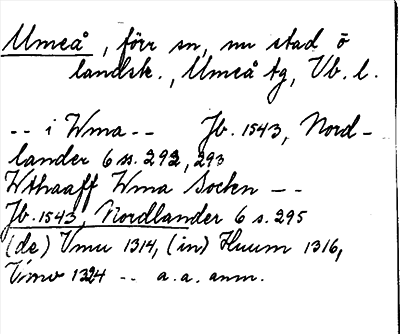 Umeå, förr sn, nu stad ö
landsk., Umeå tg, Vb. l.
-- i Wma -- Jb. 1543, Nord-
lander 6 ss. 292, 293
Wthaaff Wma Socken --
Jb. 1543, Nordlander 6 s. 295
(de) Vmu 1314, (in) Huum 1316,
1324 -- a.a. anm.